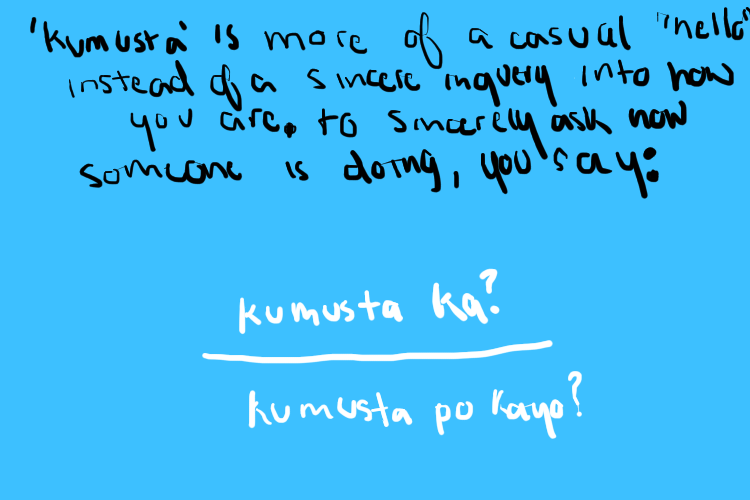 'Kumusta' is more of a casual "hello"
instead of a sincere inquery into how
you are. to sincerely ask how
someone is doing, you say:
kumusta ka?
kumusta po kayo?